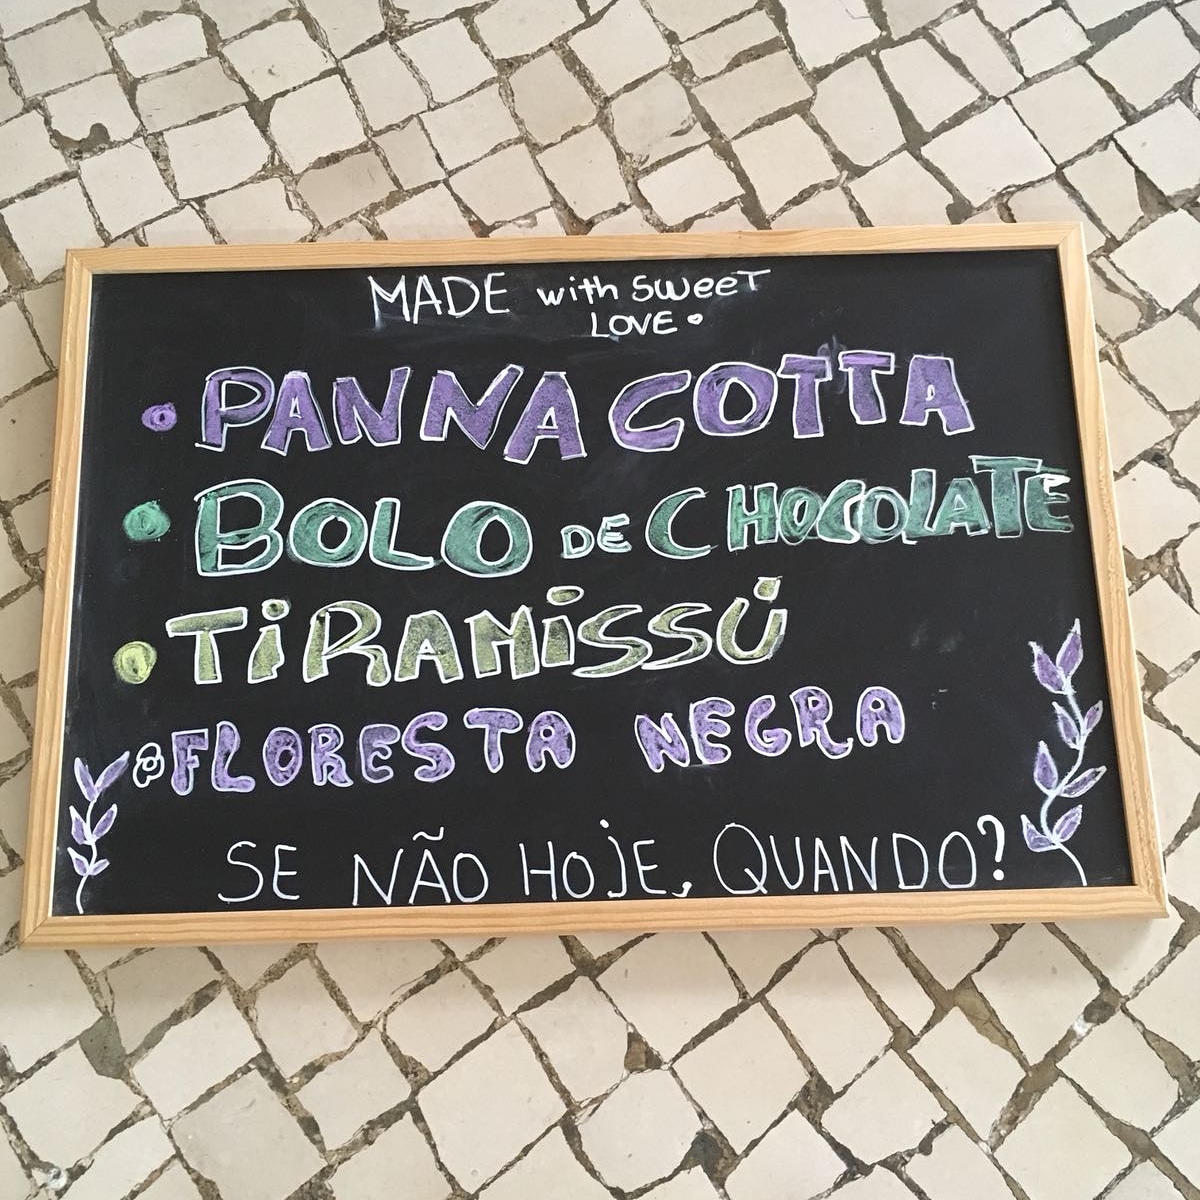 MADE with SWeeT
LOVE
• PANNA COTTA
• BOLO DE CHOCOLATE
• TiRAMiSSÚ
• FLORESTA NEGRA
SE NÃO HOJE, QUANDO?